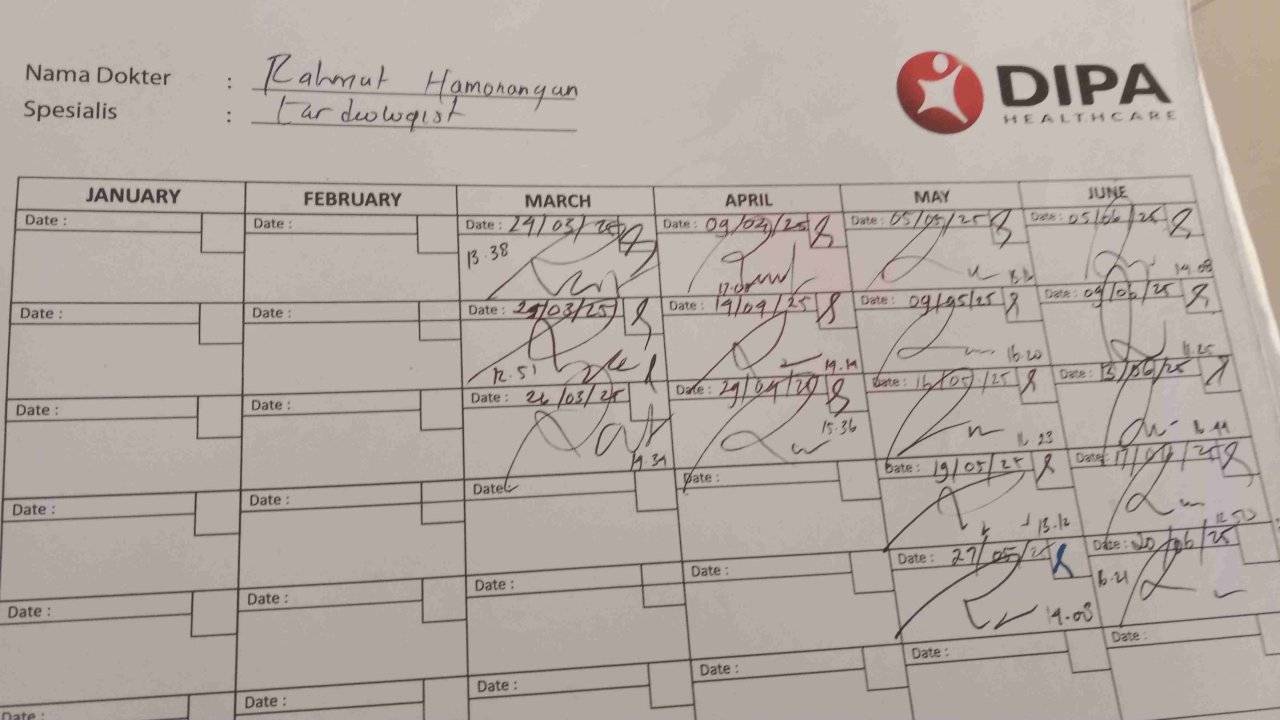 Nama Dokter : Rahmat Hamonangan
Spesialis : Cardiologist
DIPA
HEALTHCARE
JANUARY FEBRUARY MARCH APRIL MAY JUNE
Date : Date : Date : 24/03/25 Date : 09/04/25 Date : 05/05/25 Date : 05/06/25
13.38 14.08
Date : Date : Date : 25/03/25 Date : 14/04/25 Date : 09/05/25 Date : 09/06/25
12.51 14.14 16.20 11.25
Date : Date : Date : 26/03/25 Date : 29/04/25 Date : 16/05/25 Date : 13/06/25
14.34 15.36 11.23
Date : Date : Date : Date : Date : 19/05/25 Date : 17/06/25
13.12 12.50
Date : Date : Date : Date : Date : 27/05/25 Date : 20/06/25
14.08
Date : Date : Date : Date : Date : Date :